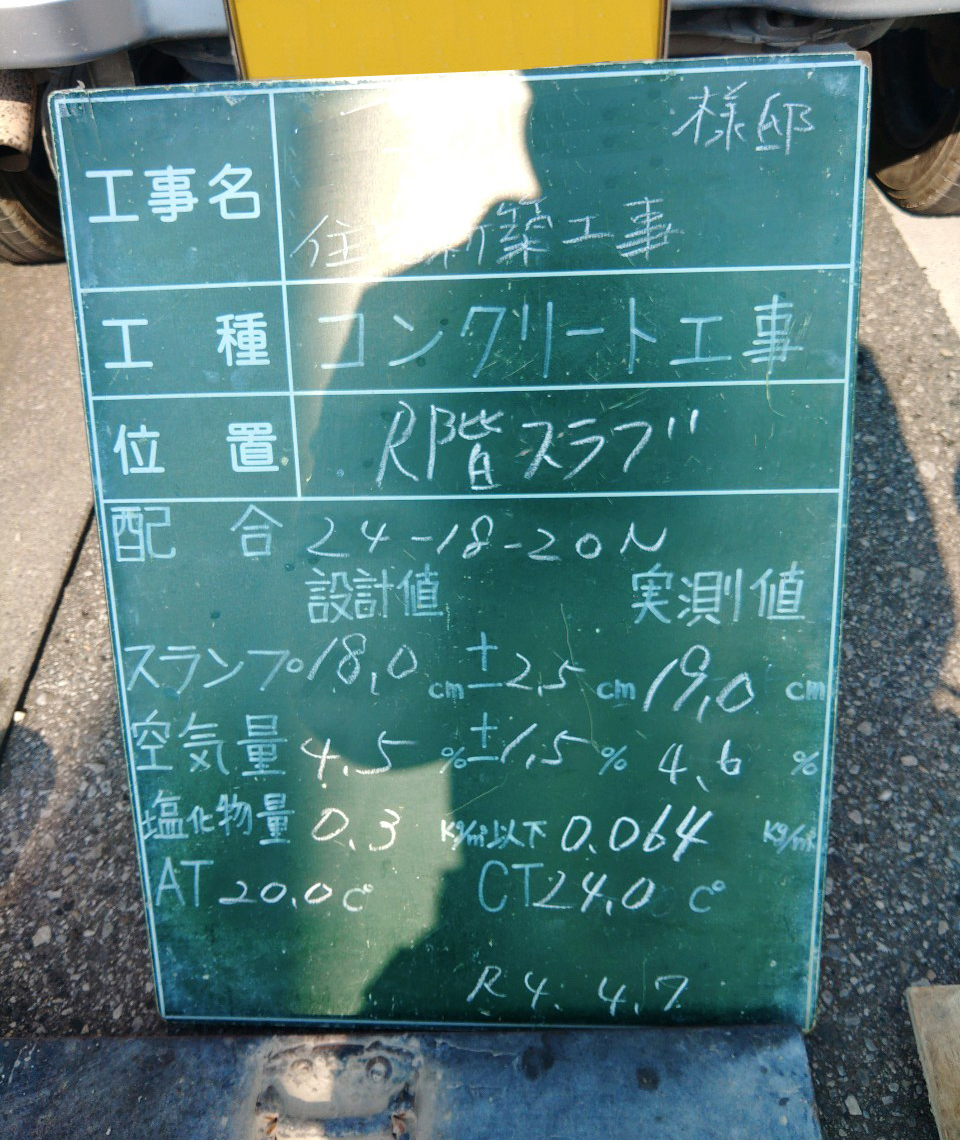 様邸
工事名
住 新築工事
工種 コンクリート工事
位置 R階スラブ
配合 24-18-20N
設計値 実測値
スランプ 18.0 cm ±2.5 cm 19.0 cm
空気量 4.5 % ±1.5 % 4.6 %
塩化物量 0.3 Kg/m³以下 0.064 Kg/m³
AT 20.0 C° CT 24.0 C°
R4. 4.7